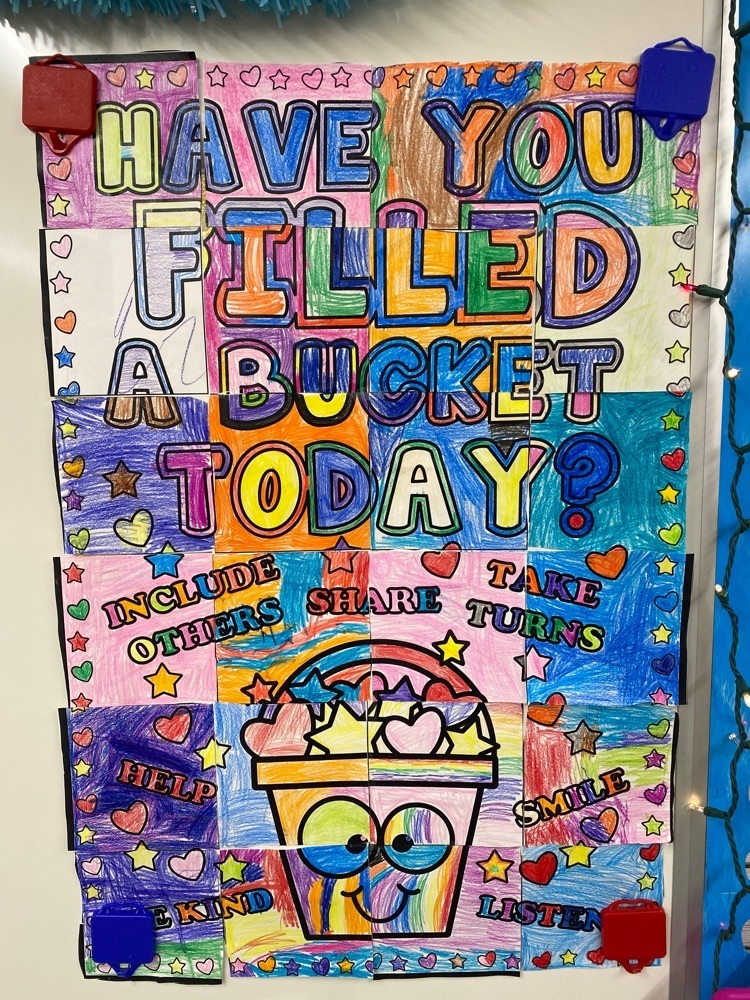 HAVE YOU
FILLED
A BUCKET
TODAY?
INCLUDE OTHERS
SHARE
TAKE TURNS
HELP
SMILE
BE KIND
LISTEN